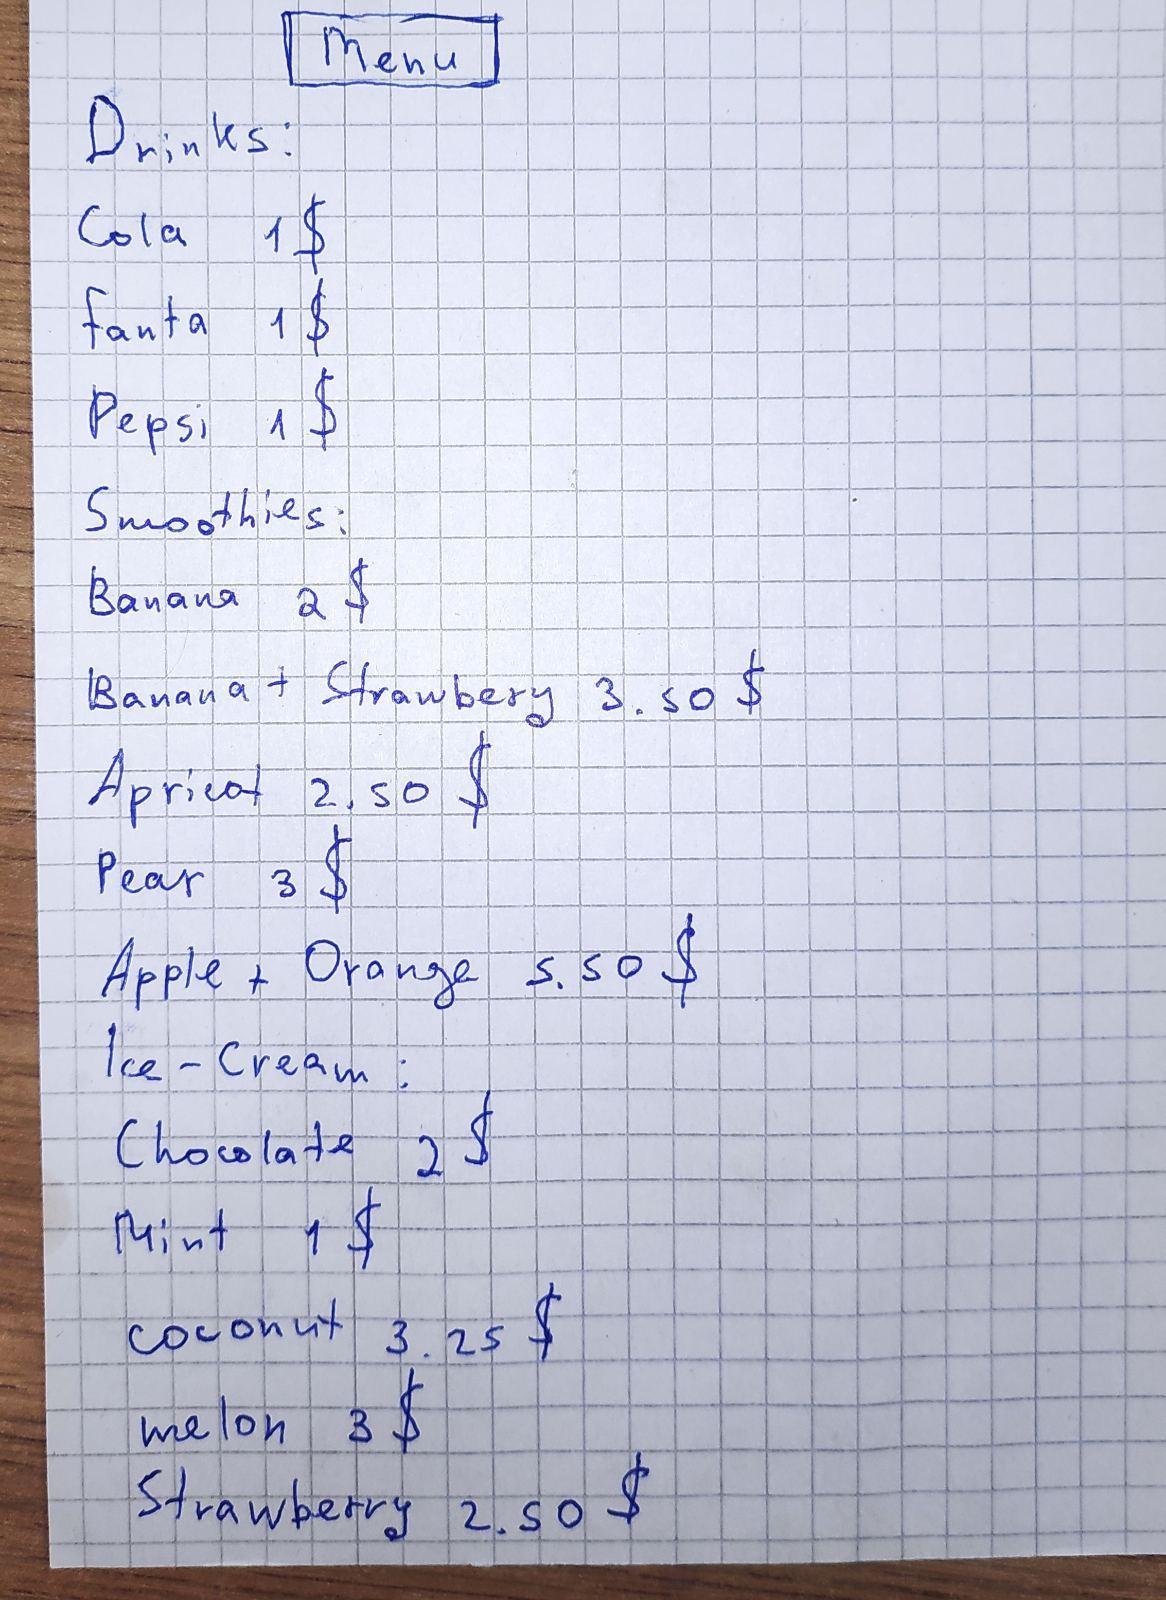 Menu
Drinks:
Cola 1$
fanta 1$
Pepsi 1$
Smoothies:
Banana 2$
Banana + Strawbery 3.50$
Apricot 2.50$
Pear 3$
Apple + Orange 5.50$
Ice-Cream:
Chocolate 2$
Mint 1$
coconut 3.25$
melon 3$
Strawberry 2.50$